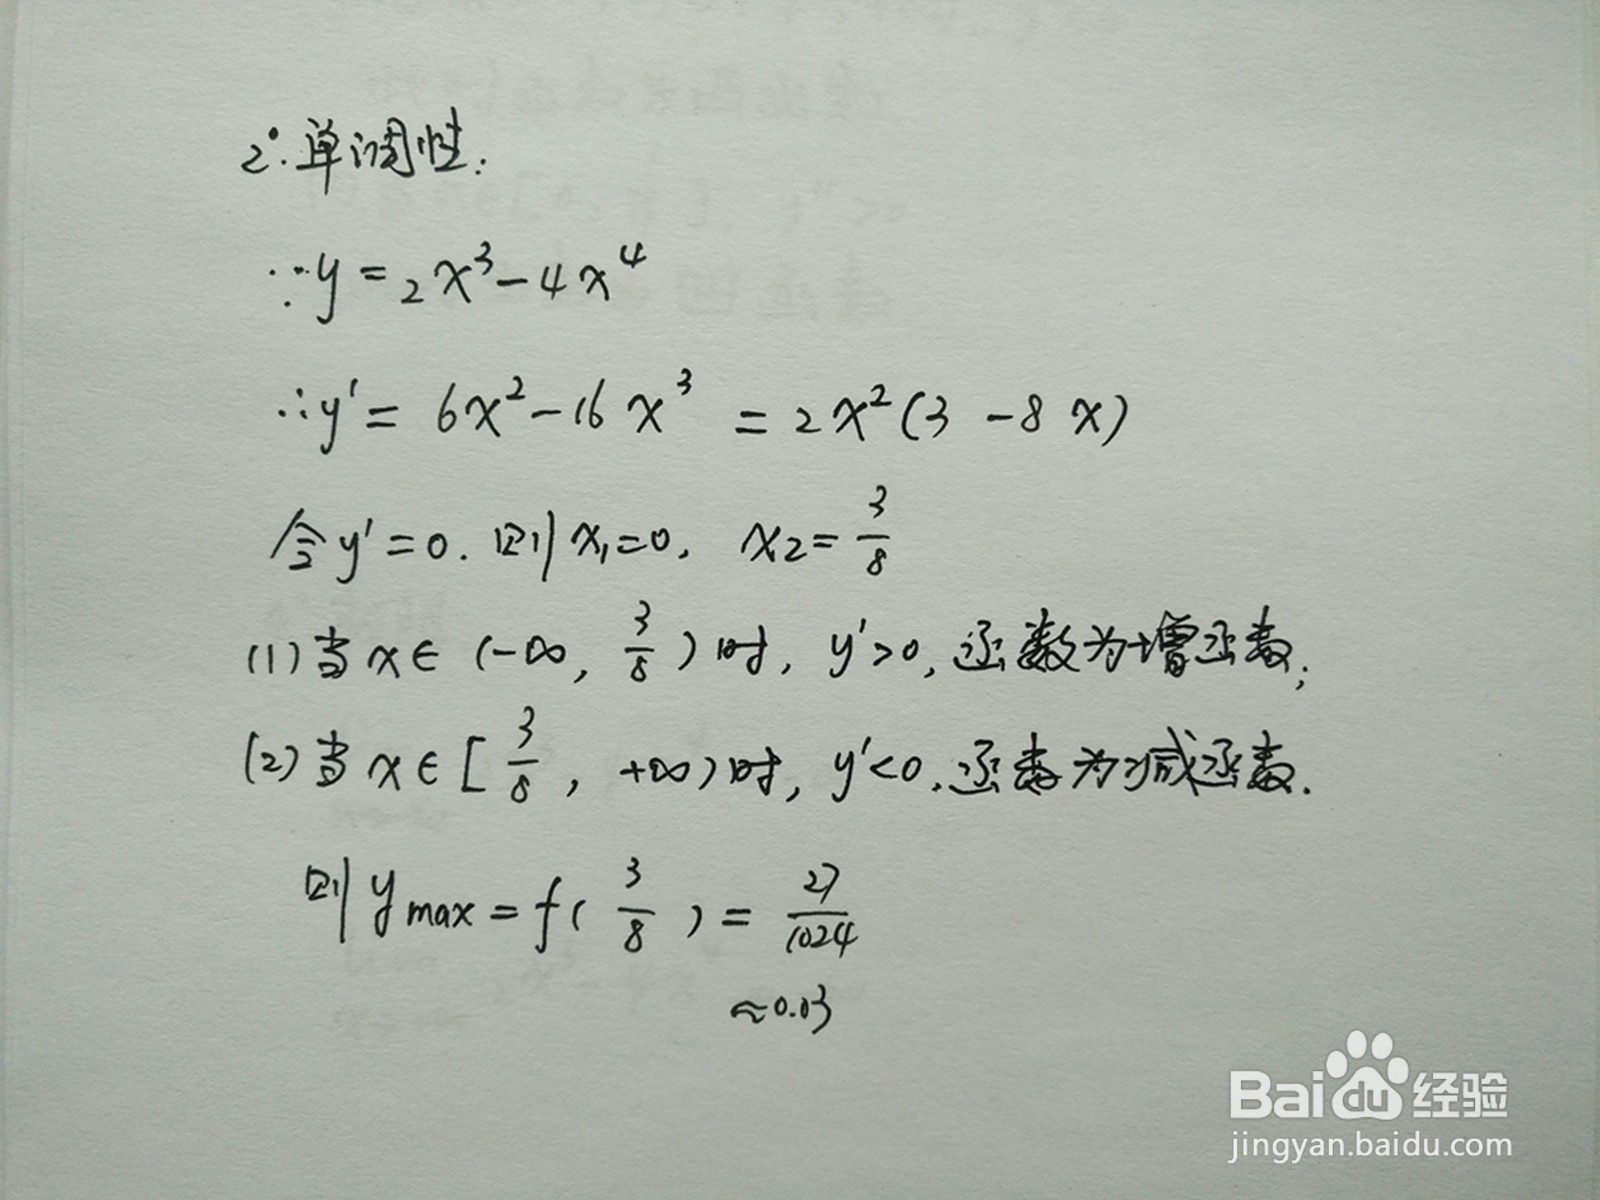 2°.单调性:
∵y=2x³-4x⁴
∴y'=6x²-16x³=2x²(3-8x)
令y'=0.则x₁=0, x₂=3/8
(1)当x∈(-∞, 3/8)时, y'>0,函数为增函数;
(2)当x∈[3/8, +∞)时, y'<0.函数为减函数.
则y max=f(3/8)=27/1024
≈0.03
Baidu经验
jingyan.baidu.com